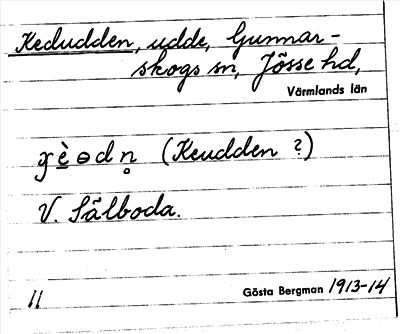 Kedudden, udde, Gunnar-
skogs sn, Jösse hd,
Värmlands län
(Keudden ?)
V. Sälboda.
11
Gösta Bergman 1913-14